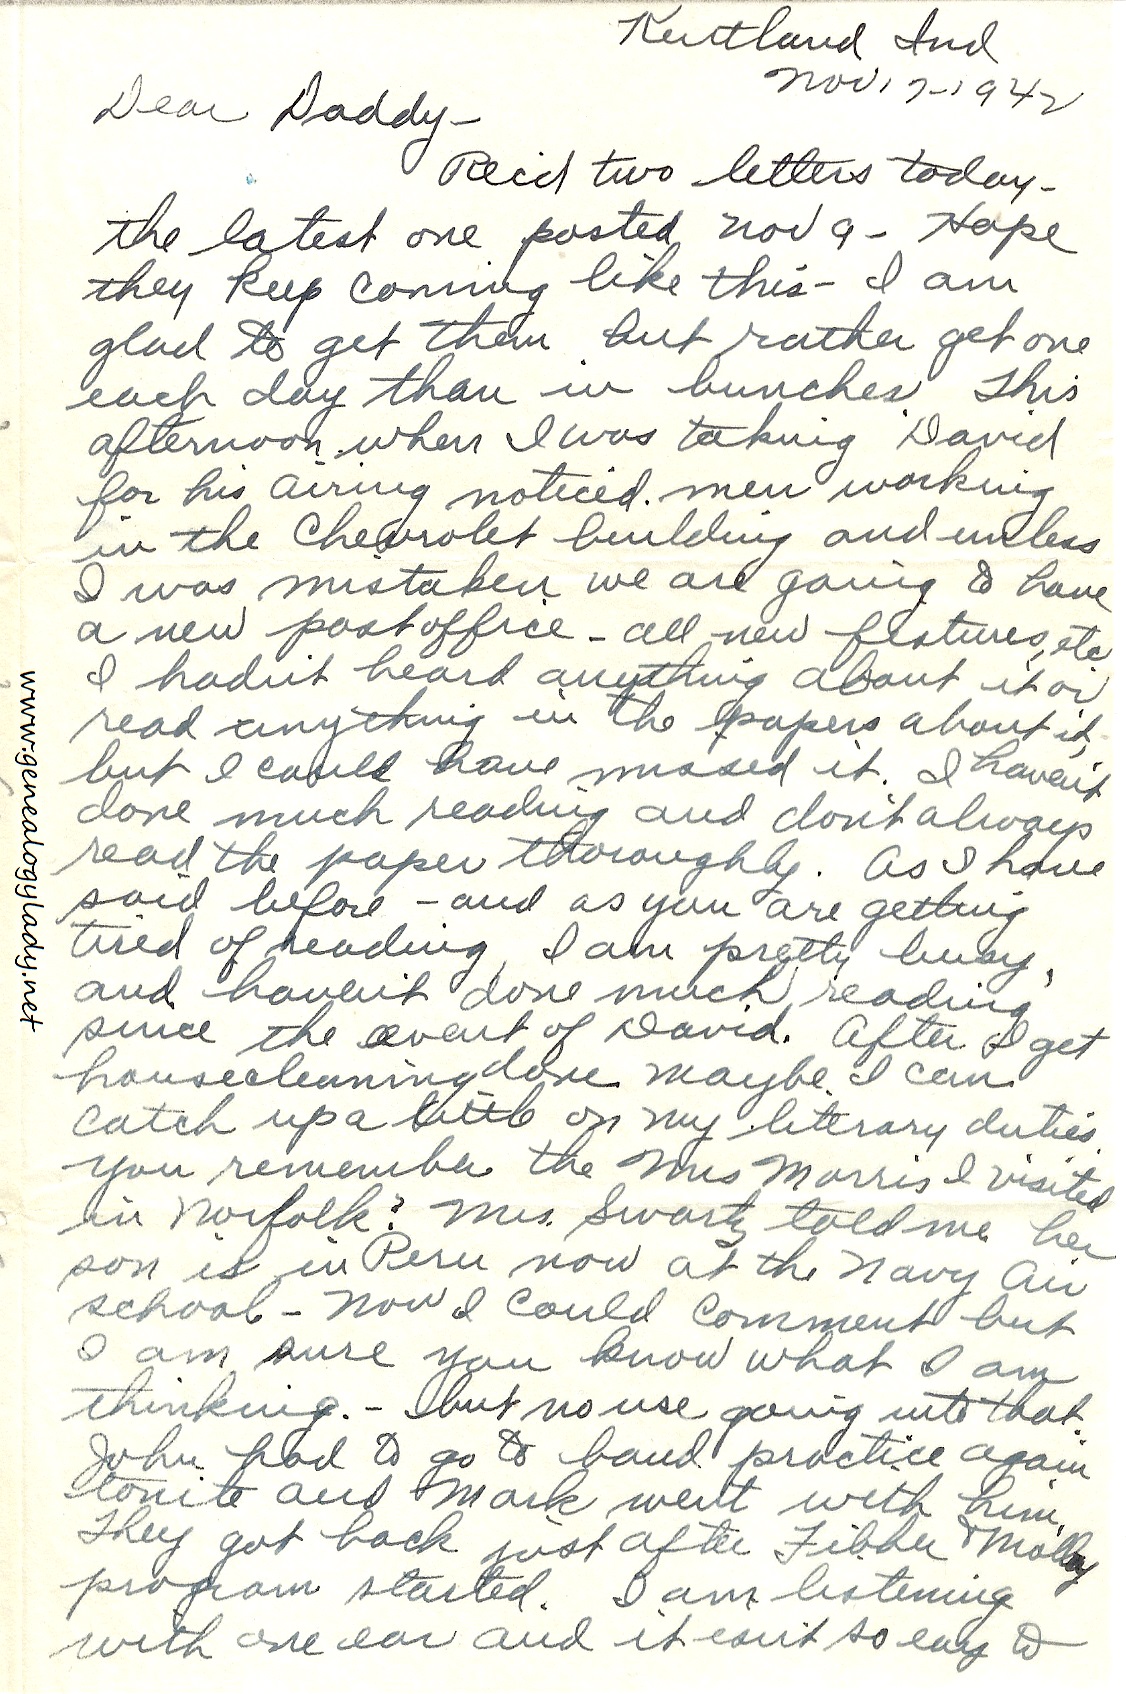 Kentland Ind
Nov 17-1942
Dear Daddy-
Rec'd two letters today-
the latest one posted Nov 9- Hope
they keep coming like this- I am
glad to get them but rather get one
each day than in bunches. This
afternoon when I was taking David
for his airing noticed men working
in the Chevrolet building and unless
I was mistaken we are going to have
a new post office - all new fixtures, etc
I hadn't heard anything about it or
read anything in the papers about it,
but I could have missed it. I haven't
done much reading and don't always
read the paper thoroughly. As I have
said before - and as you are getting
tired of reading, I am pretty busy,
and haven't done much reading
since the event of David. After I get
housecleaning done maybe I can
catch up a little on my literary duties.
You remember the Mrs Morris I visited
in Norfolk? Mrs. Swartz told me her
son is in Peru now at the Navy Air
school - Now I could comment but
I am sure you know what I am
thinking. - but no use going into that.
John had to go to band practice again
tonite and Mark went with him.
They got back just after Fibber & Molly
program started. I am listening
with one ear and it isn't so easy to
www.genealogylady.net